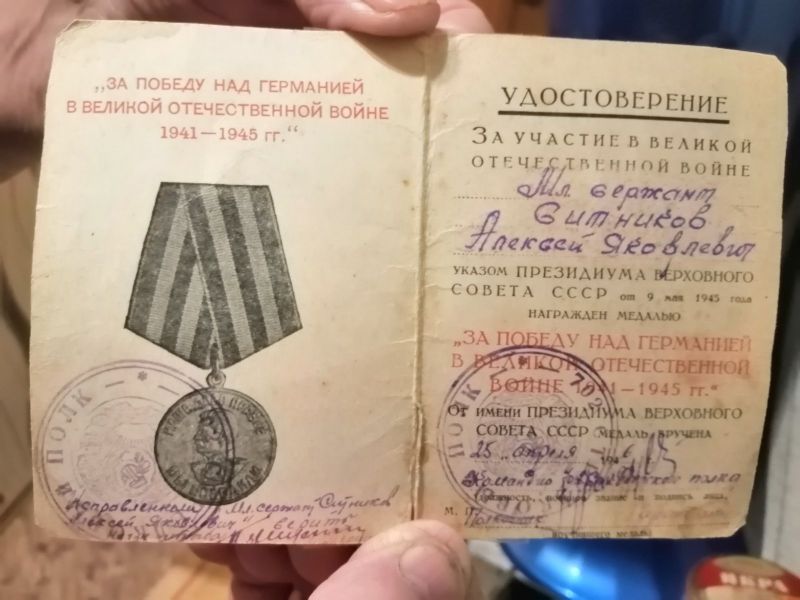 „ЗА ПОБЕДУ НАД ГЕРМАНИЕЙ
В ВЕЛИКОЙ ОТЕЧЕСТВЕННОЙ ВОЙНЕ
1941—1945 гг."
НАШЕ ДЕЛО ПРАВОЕ
МЫ ПОБЕДИЛИ
Й ПОЛК — * —
Исправленному Мл. сержант Ситников
Алексей Яковлевич верить
УДОСТОВЕРЕНИЕ
ЗА УЧАСТИЕ В ВЕЛИКОЙ
ОТЕЧЕСТВЕННОЙ ВОЙНЕ
Мл. сержант
Ситников
Алексей Яковлевич
УКАЗОМ ПРЕЗИДИУМА ВЕРХОВНОГО
СОВЕТА СССР от 9 мая 1945 года
НАГРАЖДЕН МЕДАЛЬЮ
„ЗА ПОБЕДУ НАД ГЕРМАНИЕЙ
В ВЕЛИКОЙ ОТЕЧЕСТВЕННОЙ
ВОЙНЕ 1941—1945 гг."
ОТ ИМЕНИ ПРЕЗИДИУМА ВЕРХОВНОГО
СОВЕТА СССР МЕДАЛЬ ВРУЧЕНА
25 „апреля 1946
Командир полка
(должность, военное звание и подпись лица,
М. П. Полковник
вручившего медаль)
ПОЛК — * — 702